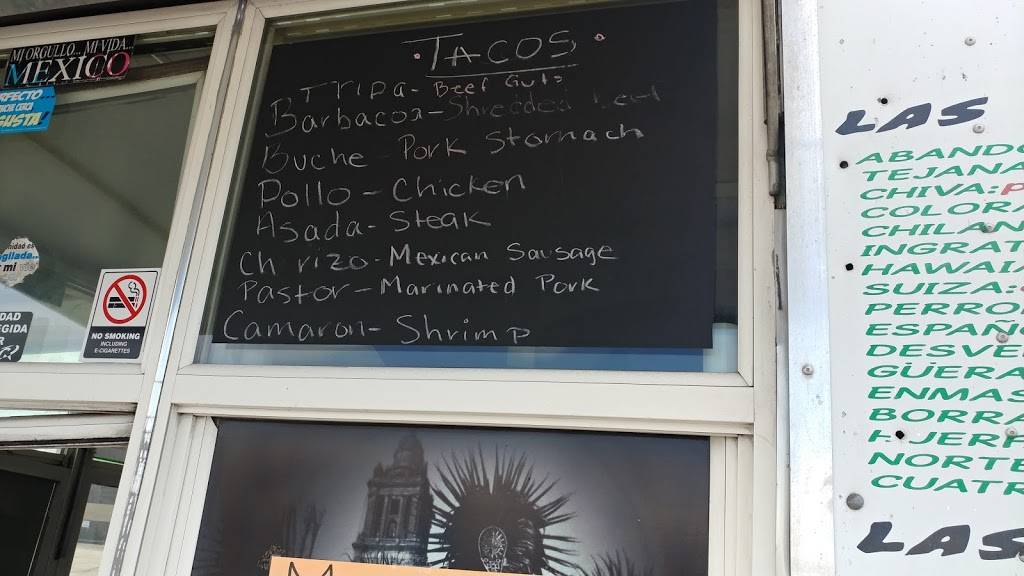 MI ORGULLO... MI VIDA...
MEXICO
GUSTA!
NO SMOKING
INCLUDING
E-CIGARETTES
TACOS
Tripa - Beef Guts
Barbacoa - Shredded
Buche Pork Stomach
Pollo - Chicken
Asada - Steak
Ch rizo - Mexican Sausage
Pastor - Marinated Pork
Camaron - Shrimp
LAS
ABANDO
TEJANA
CHIVA:
COLORA
CHILAN
INGRAT
HAWAIA
SUIZA:
PERRO
ESPAÑO
DESVE
GÜERA
ENMAS
BORRA
NORTE
CUATR
LAS